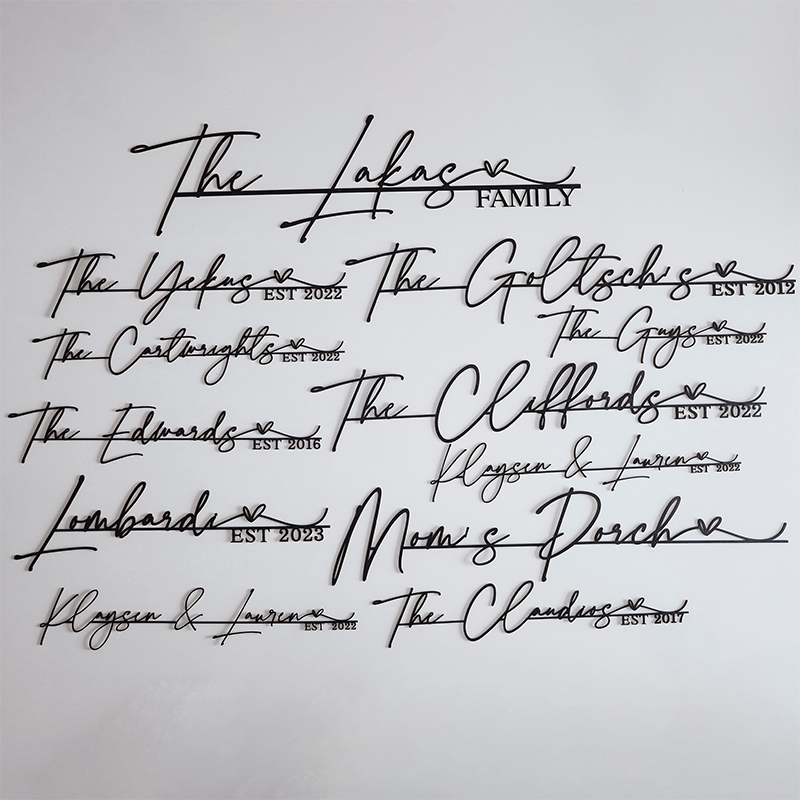 The Lakas
FAMILY
The Yekus
EST 2022
The Goltsch's
EST 2012
The Cartwrights
EST 2022
The Guys
EST 2022
The Edwards
EST 2016
The Cliffords
EST 2022
Klaysen & Lauren
EST 2022
Lombardi
EST 2023
Mom's Porch
Klaysen & Lauren
EST 2022
The Claudios
EST 2017